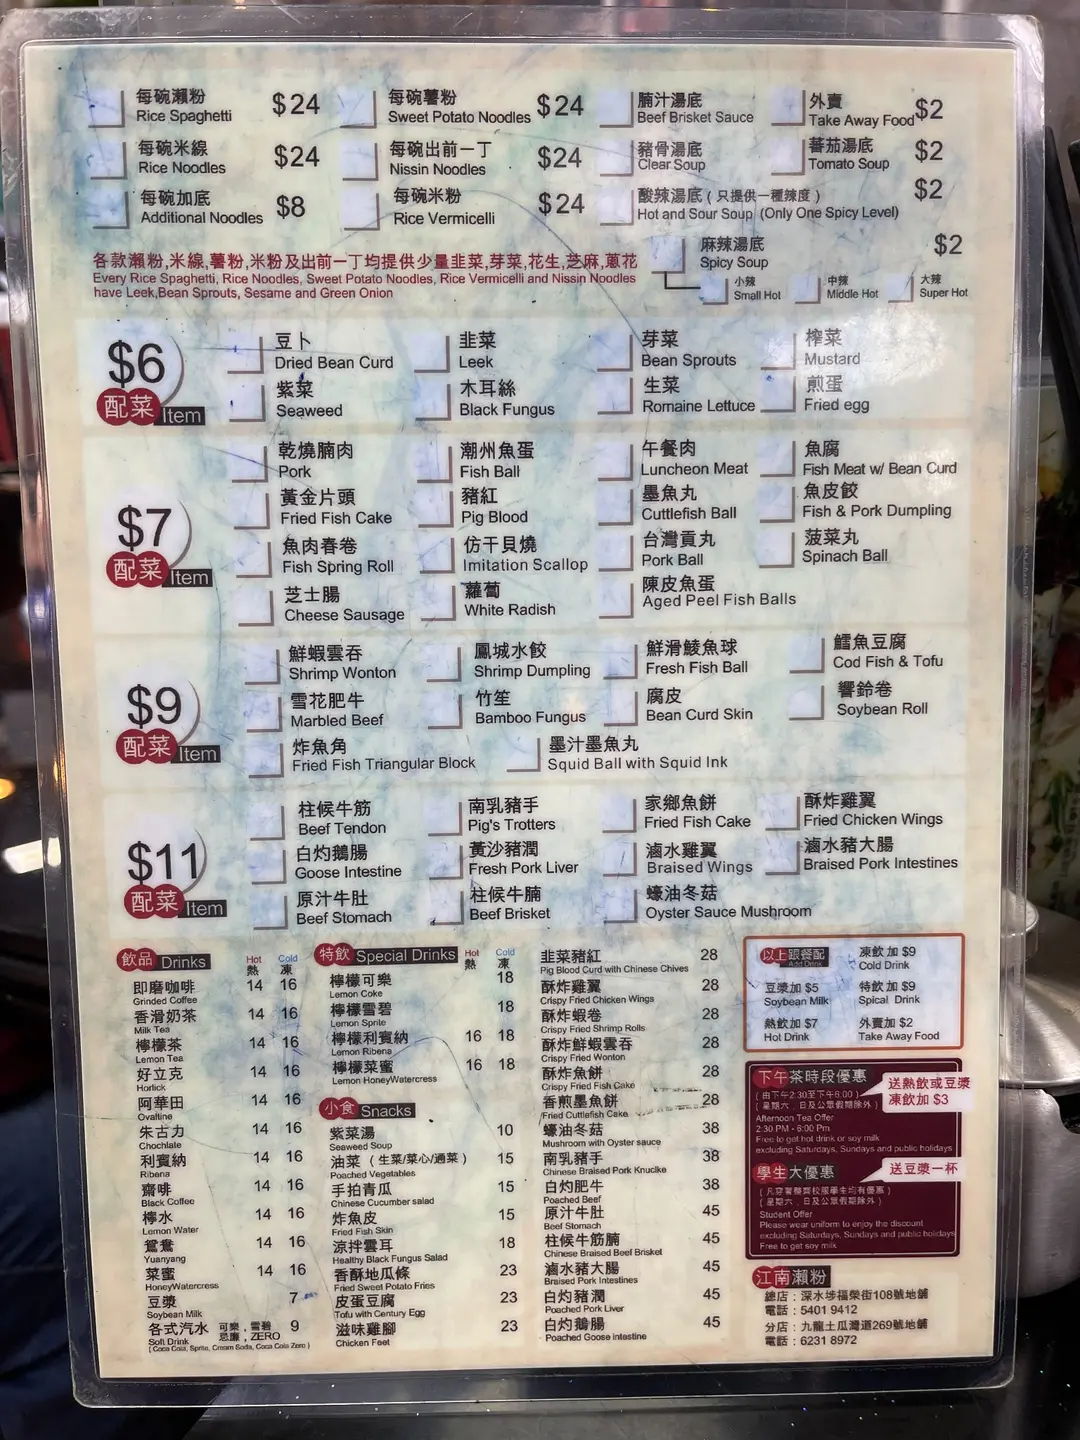 每碗瀨粉 $24
Rice Spaghetti
每碗薯粉 $24
Sweet Potato Noodles
腩汁湯底
Beef Brisket Sauce
外賣 $2
Take Away Food
每碗米線 $24
Rice Noodles
每碗出前一丁 $24
Nissin Noodles
豬骨湯底
Clear Soup
蕃茄湯底 $2
Tomato Soup
每碗加底 $8
Additional Noodles
每碗米粉 $24
Rice Vermicelli
酸辣湯底（只提供一種辣度） $2
Hot and Sour Soup (Only One Spicy Level)
麻辣湯底 $2
Spicy Soup
小辣
Small Hot
中辣
Middle Hot
大辣
Super Hot
各款瀨粉,米線,薯粉,米粉及出前一丁均提供少量韭菜,芽菜,花生,芝麻,蔥花
Every Rice Spaghetti, Rice Noodles, Sweet Potato Noodles, Rice Vermicelli and Nissin Noodles
have Leek,Bean Sprouts, Sesame and Green Onion
$6
配菜 Item
豆卜
Dried Bean Curd
韭菜
Leek
芽菜
Bean Sprouts
榨菜
Mustard
紫菜
Seaweed
木耳絲
Black Fungus
生菜
Romaine Lettuce
煎蛋
Fried egg
$7
配菜 Item
乾燒腩肉
Pork
潮州魚蛋
Fish Ball
午餐肉
Luncheon Meat
魚腐
Fish Meat w/ Bean Curd
黃金片頭
Fried Fish Cake
豬紅
Pig Blood
墨魚丸
Cuttlefish Ball
魚皮餃
Fish & Pork Dumpling
魚肉春卷
Fish Spring Roll
仿干貝燒
Imitation Scallop
台灣貢丸
Pork Ball
菠菜丸
Spinach Ball
芝士腸
Cheese Sausage
蘿蔔
White Radish
陳皮魚蛋
Aged Peel Fish Balls
$9
配菜 Item
鮮蝦雲吞
Shrimp Wonton
鳳城水餃
Shrimp Dumpling
鮮滑鯪魚球
Fresh Fish Ball
鱈魚豆腐
Cod Fish & Tofu
雪花肥牛
Marbled Beef
竹笙
Bamboo Fungus
腐皮
Bean Curd Skin
響鈴卷
Soybean Roll
炸魚角
Fried Fish Triangular Block
墨汁墨魚丸
Squid Ball with Squid Ink
$11
配菜 Item
柱候牛筋
Beef Tendon
南乳豬手
Pig's Trotters
家鄉魚餅
Fried Fish Cake
酥炸雞翼
Fried Chicken Wings
白灼鵝腸
Goose Intestine
黃沙豬潤
Fresh Pork Liver
滷水雞翼
Braised Wings
滷水豬大腸
Braised Pork Intestines
原汁牛肚
Beef Stomach
柱候牛腩
Beef Brisket
蠔油冬菇
Oyster Sauce Mushroom
飲品 Drinks
Hot 熱 Cold 凍
即磨咖啡 14 16
Grinded Coffee
香滑奶茶 14 16
Milk Tea
檸檬茶 14 16
Lemon Tea
好立克 14 16
Horlick
阿華田 14 16
Ovaltine
朱古力 14 16
Chochlate
利賓納 14 16
Ribena
齋啡 14 16
Black Coffee
檸水 14 16
Lemon Water
鴛鴦 14 16
Yuanyang
菜蜜 14 16
HoneyWatercress
豆漿 7
Soybean Milk
各式汽水 可樂,雪碧 忌廉,ZERO 9
Soft Drink
( Coca Cola, Sprite, Cream Soda, Coca Cola Zero )
特飲 Special Drinks
Hot 熱 Cold 凍
檸檬可樂 18
Lemon Coke
檸檬雪碧 18
Lemon Sprite
檸檬利賓納 16 18
Lemon Ribena
檸檬菜蜜 16 18
Lemon HoneyWatercress
小食 Snacks
紫菜湯 10
Seaweed Soup
油菜（生菜/菜心/通菜） 15
Poached Vegetables
手拍青瓜 15
Chinese Cucumber salad
炸魚皮 15
Fried Fish Skin
涼拌雲耳 18
Healthy Black Fungus Salad
香酥地瓜條 23
Fried Sweet Potato Fries
皮蛋豆腐 23
Tofu with Century Egg
滋味雞腳 23
Chicken Feet
韭菜豬紅 28
Pig Blood Curd with Chinese Chives
酥炸雞翼 28
Crispy Fried Chicken Wings
酥炸蝦卷 28
Crispy Fried Shrimp Rolls
酥炸鮮蝦雲吞 28
Crispy Fried Wonton
酥炸魚餅 28
Crispy Fried Fish Cake
香煎墨魚餅 28
Fried Cuttlefish Cake
蠔油冬菇 38
Mushroom with Oyster sauce
南乳豬手 38
Chinese Braised Pork Knuclke
白灼肥牛 38
Poached Beef
原汁牛肚 45
Beef Stomach
柱候牛筋腩 45
Chinese Braised Beef Brisket
滷水豬大腸 45
Braised Pork Intestines
白灼豬潤 45
Poached Pork Liver
白灼鵝腸 45
Poached Goose intestine
以上跟餐配
Add Drink
凍飲加 $9
Cold Drink
豆漿加 $5
Soybean Milk
特飲加 $9
Spical Drink
熱飲加 $7
Hot Drink
外賣加 $2
Take Away Food
下午茶時段優惠
（由下午2:30至下午6:00）
（星期六、日及公眾假期除外）
送熱飲或豆漿
凍飲加 $3
Afternoon Tea Offer
2:30 PM - 6:00 Pm
Free to get hot drink or soy milk
excluding Saturdays, Sundays and public holidays
學生大優惠
送豆漿一杯
（凡穿著整齊校服學生均有優惠）
（星期六、日及公眾假期除外）
Student Offer
Please wear uniform to enjoy the discount
excluding Saturdays, Sundays and public holidays
Free to get soy milk
江南瀨粉
總店：深水埗福榮街108號地舖
電話：5401 9412
分店：九龍土瓜灣道269號地舖
電話：6231 8972